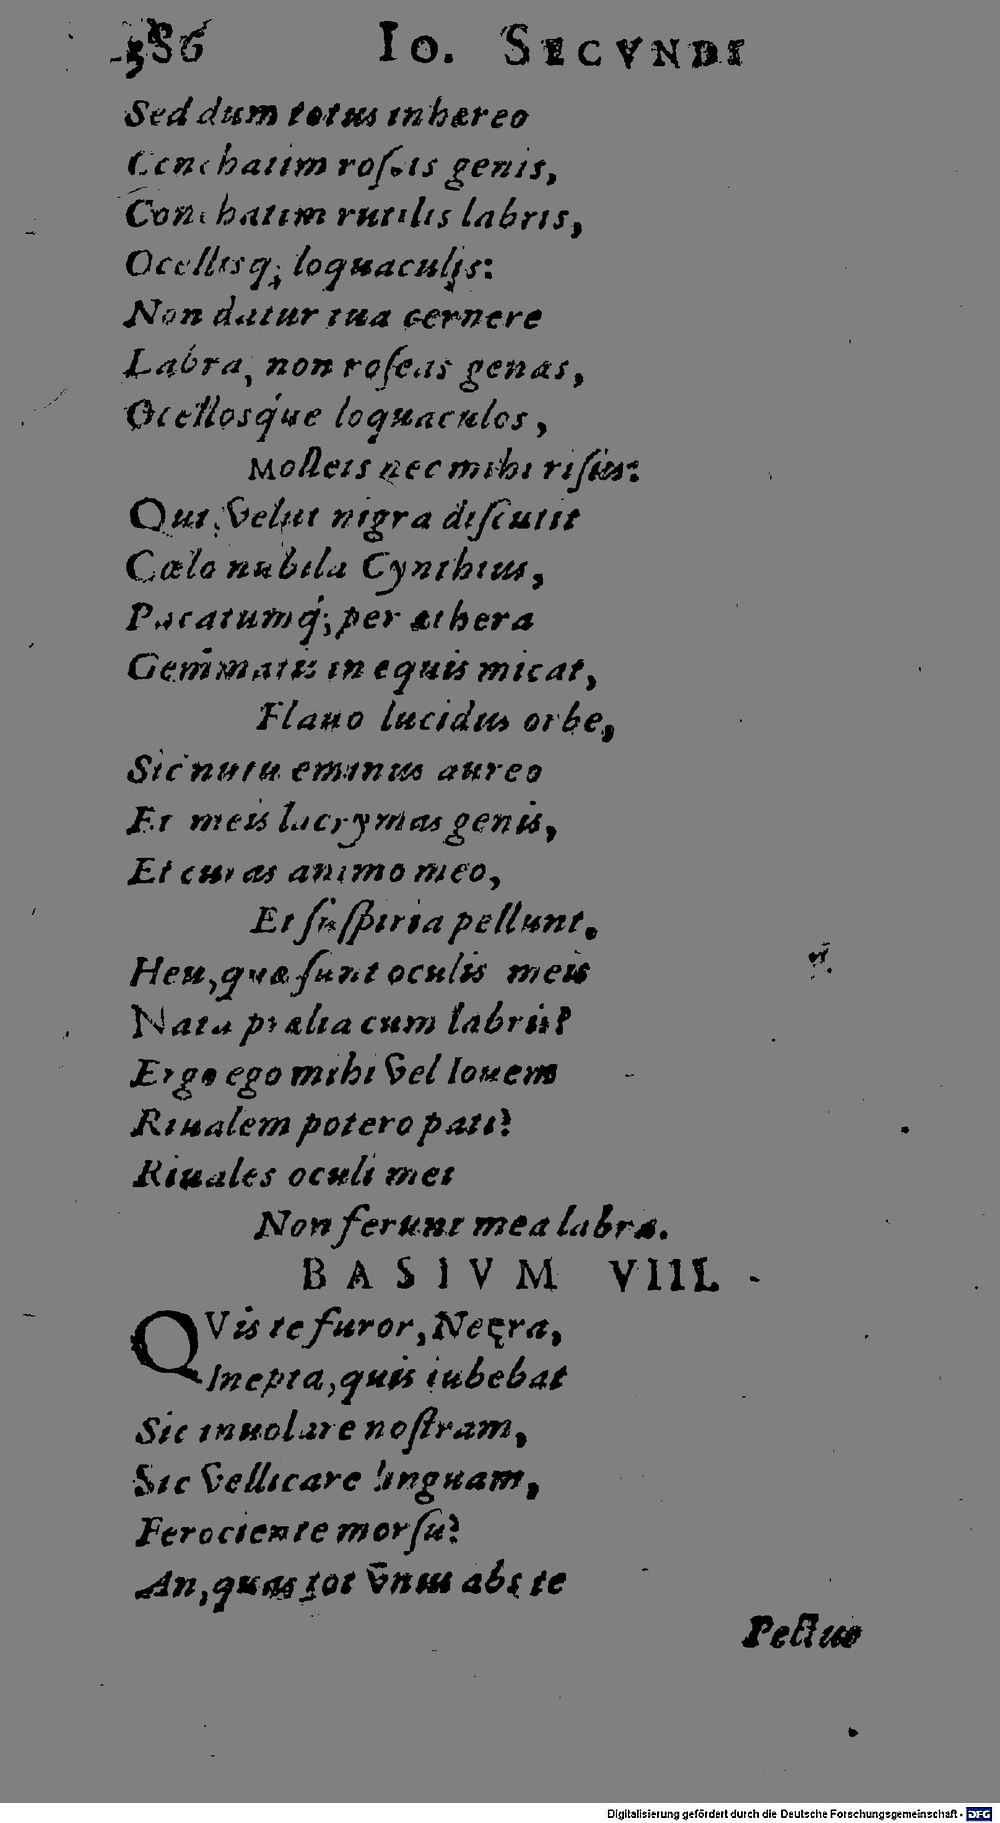 386 Io. SECVNDI
Sed dum totus inhæreo
Conchatim roseis genis,
Conchatim rutilis labris,
Ocellisq; loquaculis:
Non datur tua cernere
Labra, non roseas genas,
Ocellosque loquaculos,
Molleis nec mihi risus:
Qui, velut nigra discutit
Cœlo nubila Cynthius,
Pacatumq; per æthera
Gemmatis in equis micat,
Flauo lucidus orbe,
Sic nutu eminus aureo
Et meis lacrymas genis,
Et curas animo meo,
Et suspiria pellunt.
Heu, quæ sunt oculis meis
Nata prælia cum labris?
Ergo ego mihi vel Iouem
Riualem potero pati?
Riuales oculi mei
Non ferunt mea labra.
BASIVM VIII.
QVis te furor, Neęra,
Inepta, quis iubebat
Sic inuolare nostram,
Sic vellicare linguam,
Ferociente morsu?
An, quas tot vnus abs te
Pectus
Digitalisierung gefördert durch die Deutsche Forschungsgemeinschaft - DFG